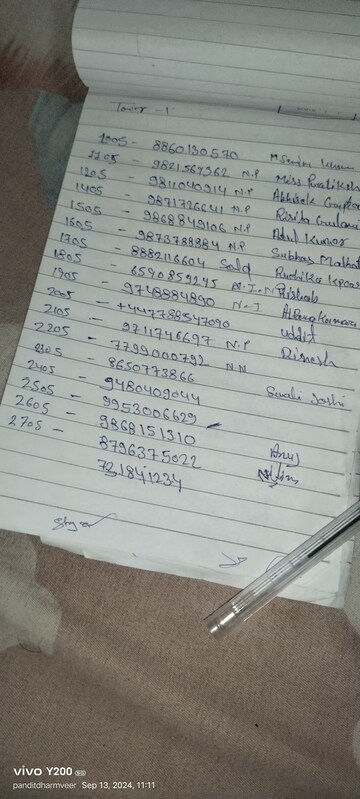 Tower - 1
1005 - 8860130570
1105 - 9821567962 N.P Miss
1205 - 9811040914 N.P Abhisek Gupta
1405 - 9871726641 N.P
1505 - 9868849106 N.P Atul Kumar
1605 - 9873788884 N.P Subhas Malhot
1705 - 8882116604 Sold Ruchika Kpoor
1805 - 6590859245 N.I.N Rishab
1905 - 9748884890 N.I
2005 - +447788547090 Uddit
2105 - 9711746697 N.P Dinesh
2205 - 7799000792 N.N
2305 - 8650773866
2405 - 9480409044 Swati Joshi
2505 - 9953006629
2605 - 9868151310
2705 - 8796375022 Anuj
731841234
vivo Y200
panditdharmveer Sep 13, 2024, 11:11